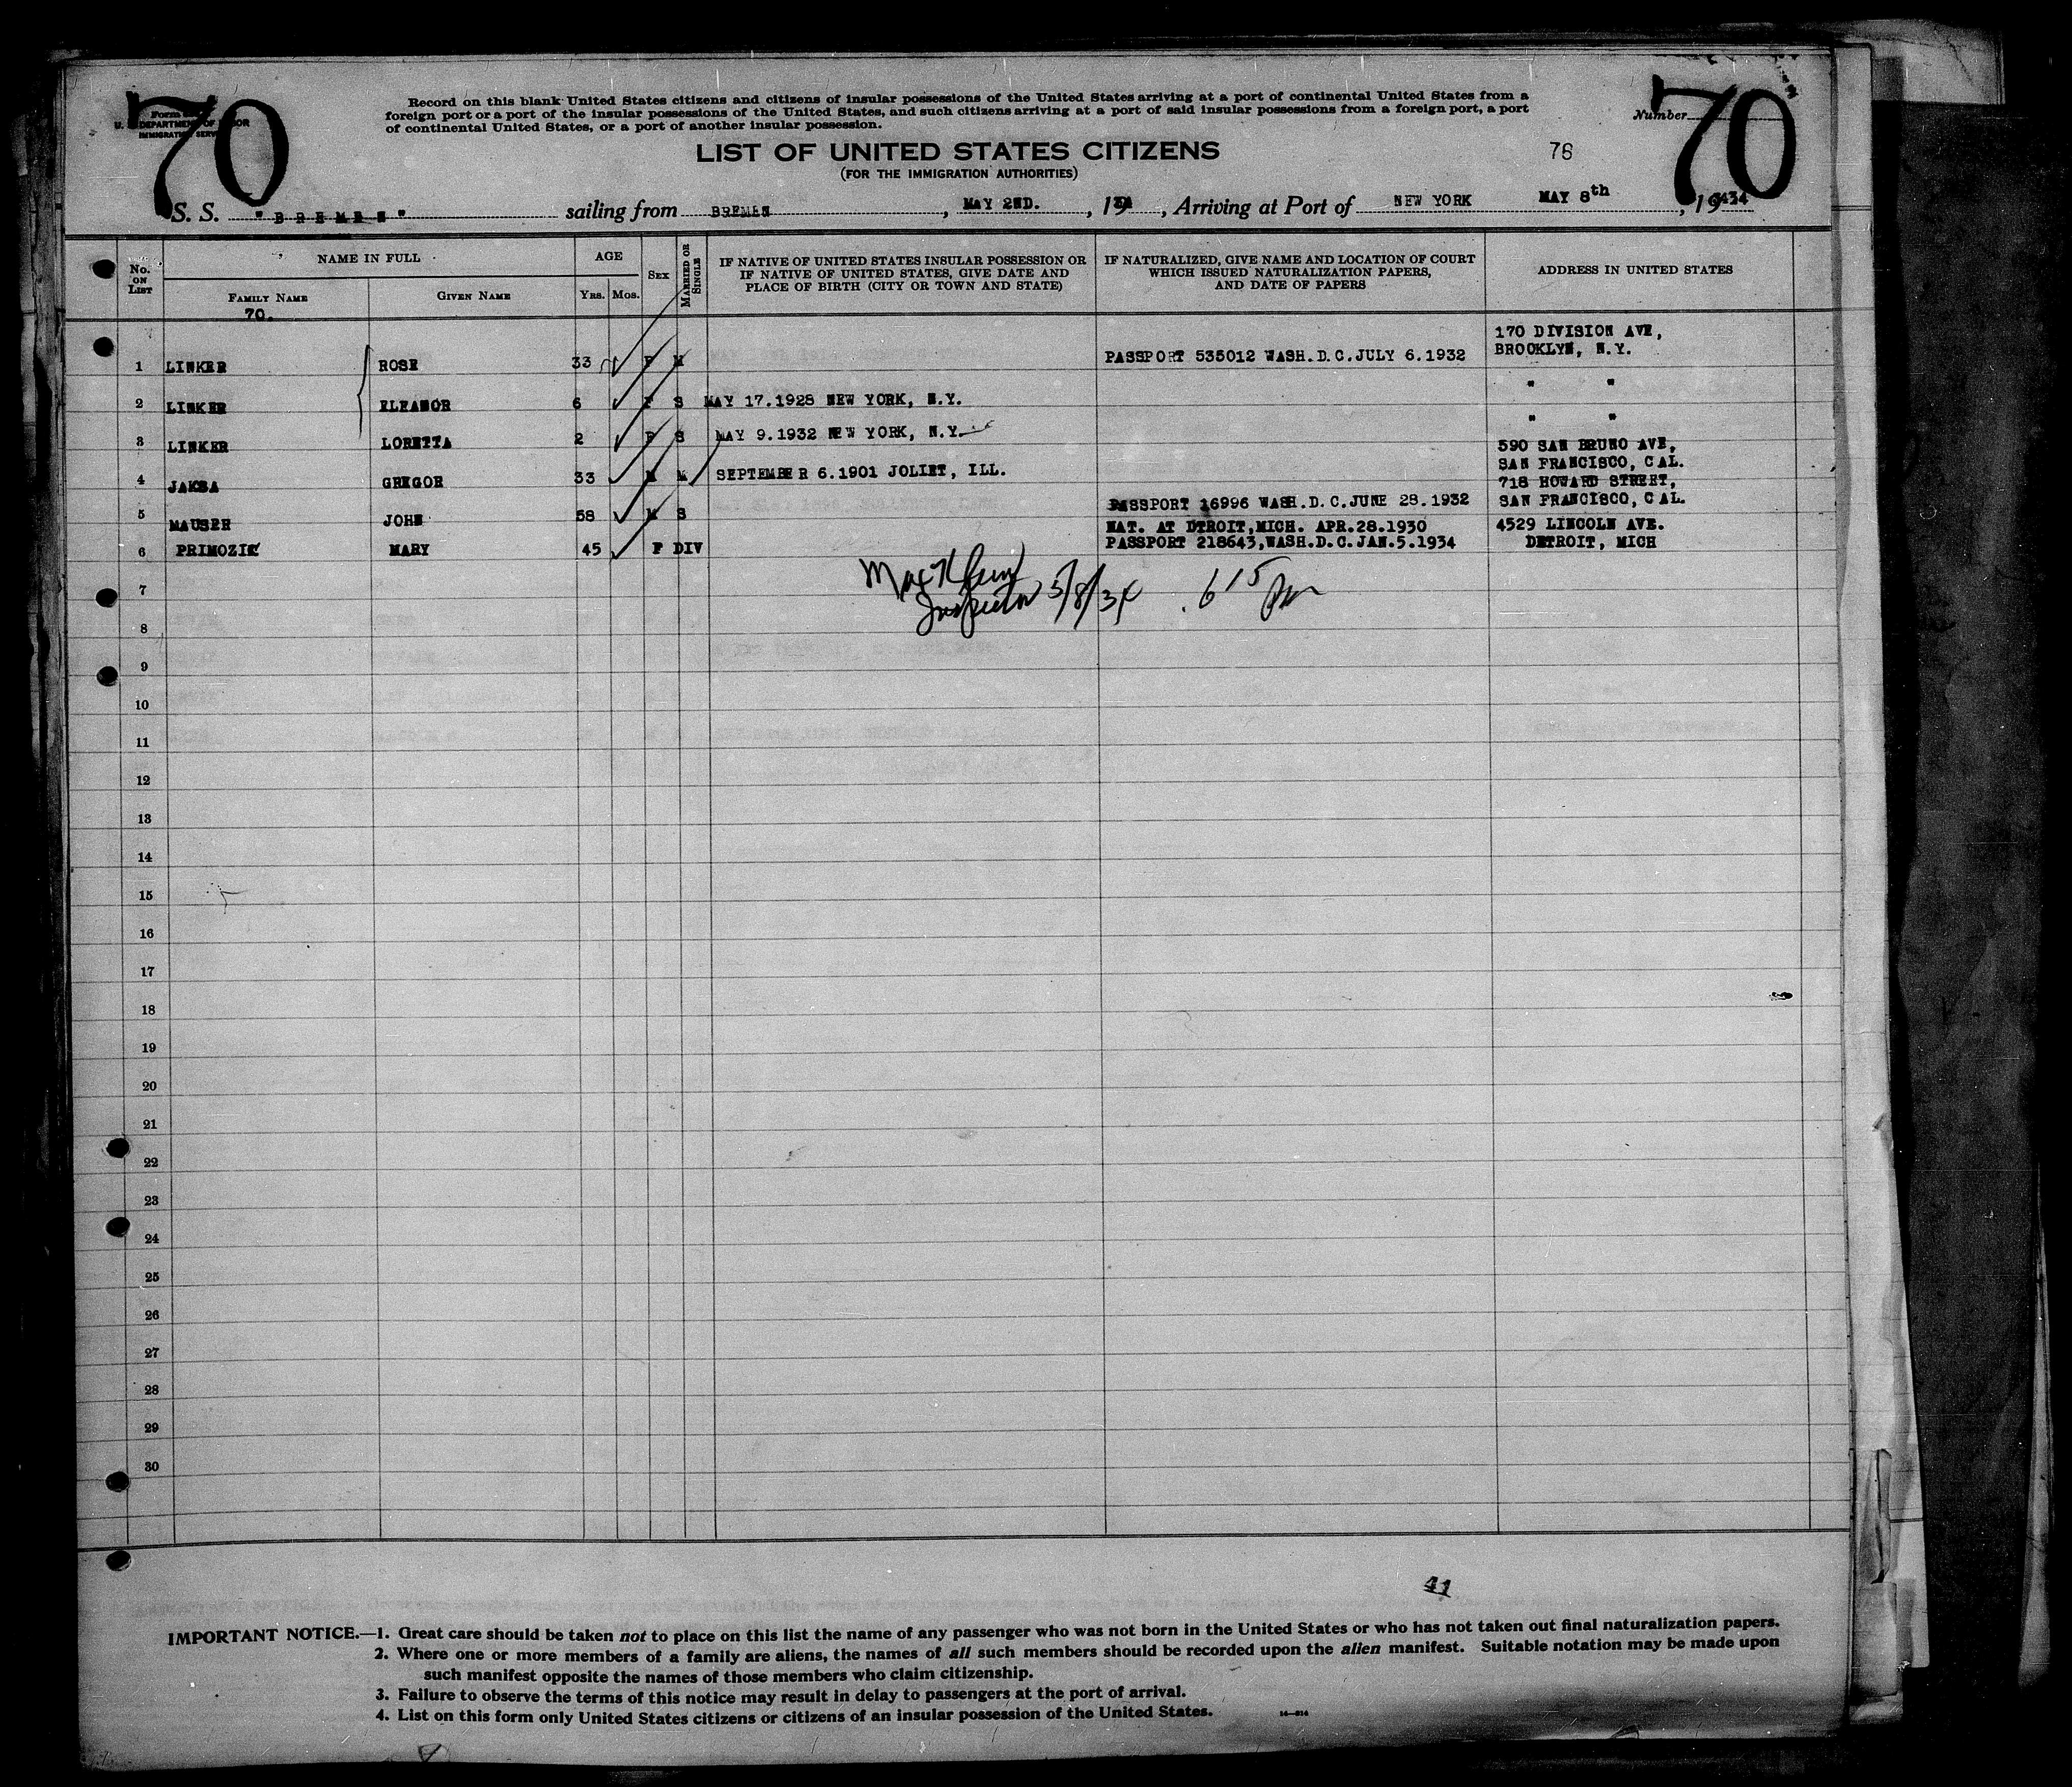 70
70
Record on this blank United States citizens and citizens of insular possessions of the United States arriving at a port of continental United States from a
foreign port or a port of the insular possessions of the United States, and such citizens arriving at a port of said insular possessions from a foreign port, a port
of continental United States, or a port of another insular possession.
Number
LIST OF UNITED STATES CITIZENS
76
(FOR THE IMMIGRATION AUTHORITIES)
S. S. "BREMEN" sailing from BREMEN, MAY 2ND., 19, Arriving at Port of NEW YORK MAY 8th, 1934
No. ON LIST
NAME IN FULL
AGE
SEX
MARRIED OR SINGLE
IF NATIVE OF UNITED STATES INSULAR POSSESSION OR
IF NATIVE OF UNITED STATES, GIVE DATE AND
PLACE OF BIRTH (CITY OR TOWN AND STATE)
IF NATURALIZED, GIVE NAME AND LOCATION OF COURT
WHICH ISSUED NATURALIZATION PAPERS,
AND DATE OF PAPERS
ADDRESS IN UNITED STATES
FAMILY NAME
GIVEN NAME
YRS.
MOS.
70.
170 DIVISION AVE,
1 LINKER ROSE 33 F M PASSPORT 535012 WASH.D.C.JULY 6.1932 BROOKLYN, N.Y.
" "
2 LINKER ELEANOR 6 F S MAY 17.1928 NEW YORK, N.Y.
" "
3 LINKER LORETTA 2 F S MAY 9.1932 NEW YORK, N.Y.
590 SAN BRUNO AVE,
SAN FRANCISCO, CAL.
4 JAKSA GREGOR 33 M M SEPTEMBER 6.1901 JOLIET, ILL.
718 HOWARD STREET,
SAN FRANCISCO, CAL.
5 MAUSER JOHN 58 M S PASSPORT 16996 WASH.D.C.JUNE 28.1932
NAT. AT DTROIT,MICH. APR.28.1930 4529 LINCOLN AVE.
6 PRIMOZIC MARY 45 F DIV PASSPORT 218643,WASH.D.C.JAN.5.1934 DETROIT, MICH
Inspector 5/8/34 615 Pm
7
8
9
10
11
12
13
14
15
16
17
18
19
20
21
22
23
24
25
26
27
28
29
30
41
IMPORTANT NOTICE.—1. Great care should be taken not to place on this list the name of any passenger who was not born in the United States or who has not taken out final naturalization papers.
2. Where one or more members of a family are aliens, the names of all such members should be recorded upon the alien manifest. Suitable notation may be made upon
such manifest opposite the names of those members who claim citizenship.
3. Failure to observe the terms of this notice may result in delay to passengers at the port of arrival.
4. List on this form only United States citizens or citizens of an insular possession of the United States.